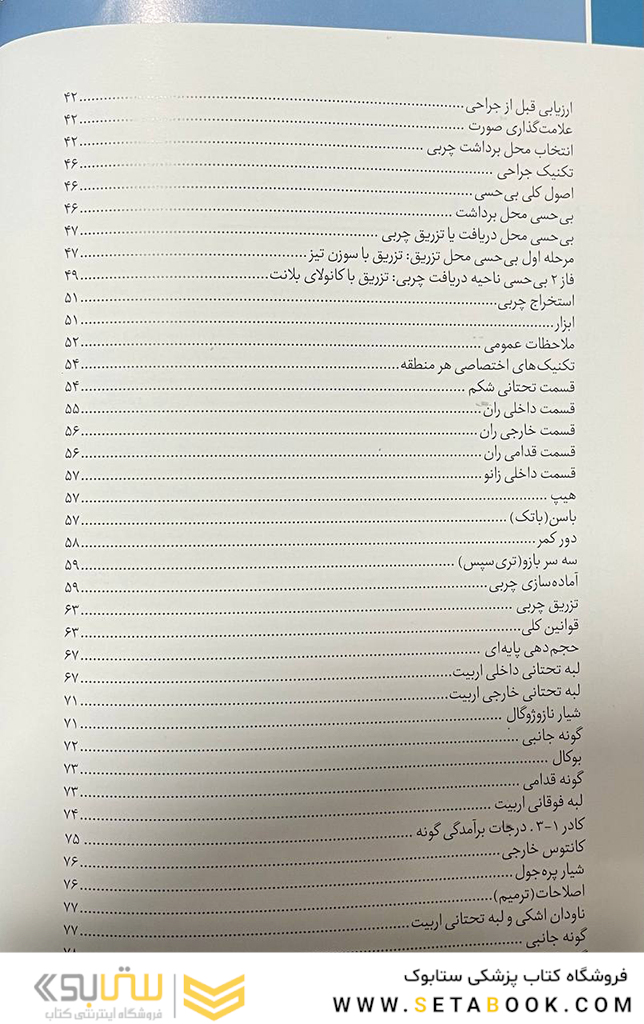 ارزیابی قبل از جراحی ۴۲
علامت‌گذاری صورت ۴۲
انتخاب محل برداشت چربی ۴۲
تکنیک جراحی ۴۶
اصول کلی بی‌حسی ۴۶
بی‌حسی محل برداشت ۴۶
بی‌حسی محل دریافت یا تزریق چربی ۴۷
مرحله اول بی‌حسی محل تزریق: تزریق با سوزن تیز ۴۷
فاز ۲ بی‌حسی ناحیه دریافت چربی: تزریق با کانولای بلانت ۴۹
استخراج چربی ۵۱
ابزار ۵۱
ملاحظات عمومی ۵۲
تکنیک‌های اختصاصی هر منطقه ۵۴
قسمت تحتانی شکم ۵۴
قسمت داخلی ران ۵۵
قسمت خارجی ران ۵۶
قسمت قدامی ران ۵۶
قسمت داخلی زانو ۵۷
هیپ ۵۷
باسن(باتک) ۵۷
دور کمر ۵۸
سه سر بازو(تری‌سپس) ۵۹
آماده‌سازی چربی ۵۹
تزریق چربی ۶۳
قوانین کلی ۶۳
حجم‌دهی پایه‌ای ۶۷
لبه تحتانی داخلی اربیت ۶۷
لبه تحتانی خارجی اربیت ۷۱
شیار نازوژوگال ۷۱
گونه جانبی ۷۲
بوکال ۷۳
گونه قدامی ۷۳
لبه فوقانی اربیت ۷۴
کادر ۱-۳. درجات برآمدگی گونه ۷۵
کانتوس خارجی ۷۶
شیار پره‌جول ۷۶
اصلاحات(ترمیم) ۷۷
ناودان اشکی و لبه تحتانی اربیت ۷۷
گونه جانبی ۷۸
فروشگاه کتاب پزشکی ستابوک
WWW.SETABOOK.COM
ستابوک
فروشگاه اینترنتی کتاب